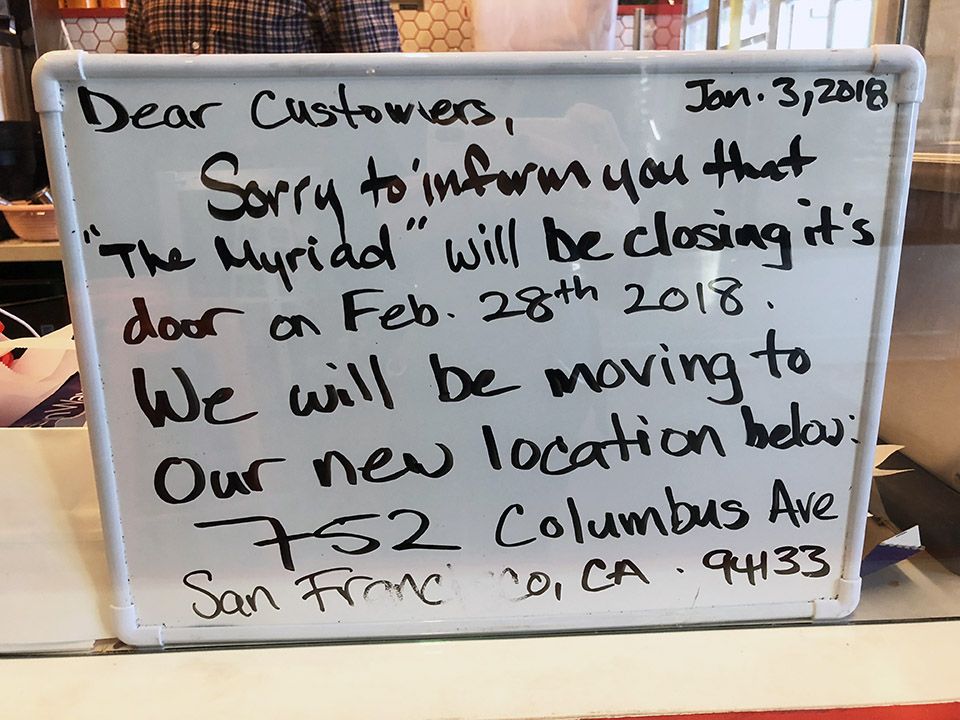 Dear Customers, Jan. 3, 2018
Sorry to inform you that
"The Myriad" will be closing it's
door on Feb. 28th 2018.
We will be moving to
Our new location below:
752 Columbus Ave
San Francisco, CA. 94133